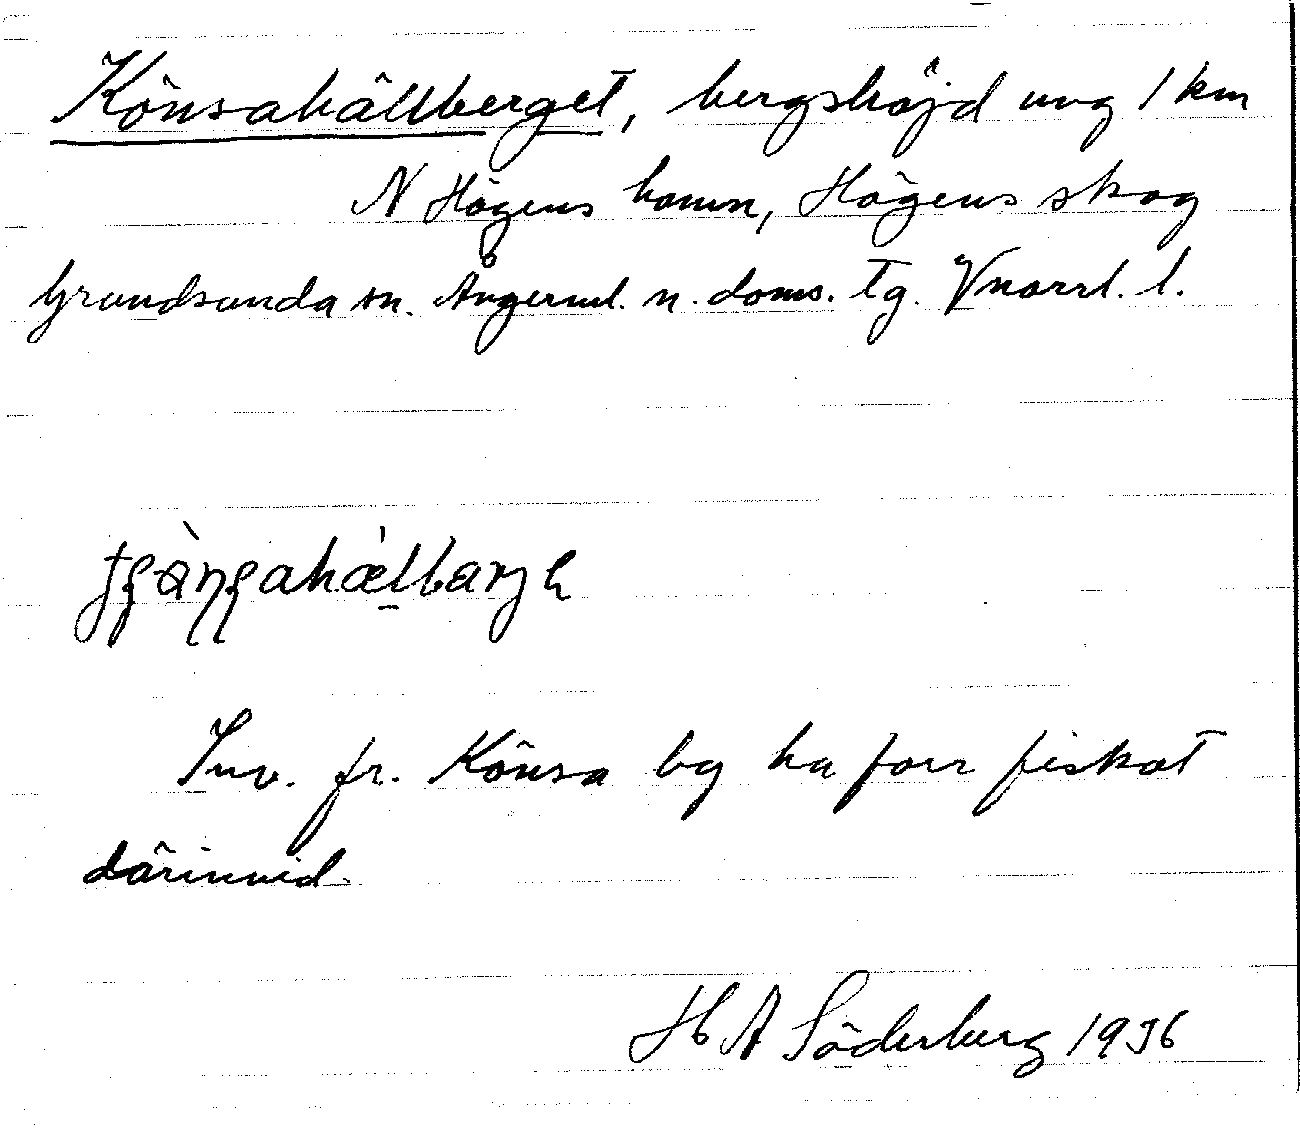 Könsahällberget, bergshöjd ung 1 km
N Högens hamn, Högens skog
Grundsunda sn. Ångerml. n. doms. tg. Vnorrl. l.
Inv. fr. Könsa by ha förr fiskat
därinvid.
H A Söderberg 1936